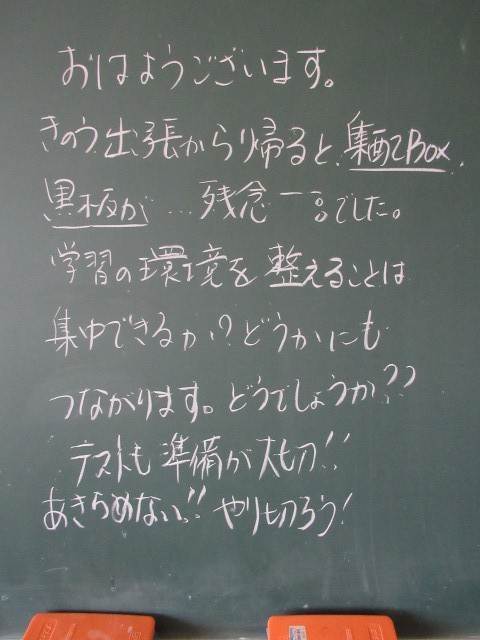 おはようございます。
きのう出張から帰ると、集配Box、
黒板が…残念ー。でした。
学習の環境を整えることは
集中できるか?どうかにも
つながります。どうでしょうか??
テストも準備が大切!!
あきらめない!!やり切ろう!